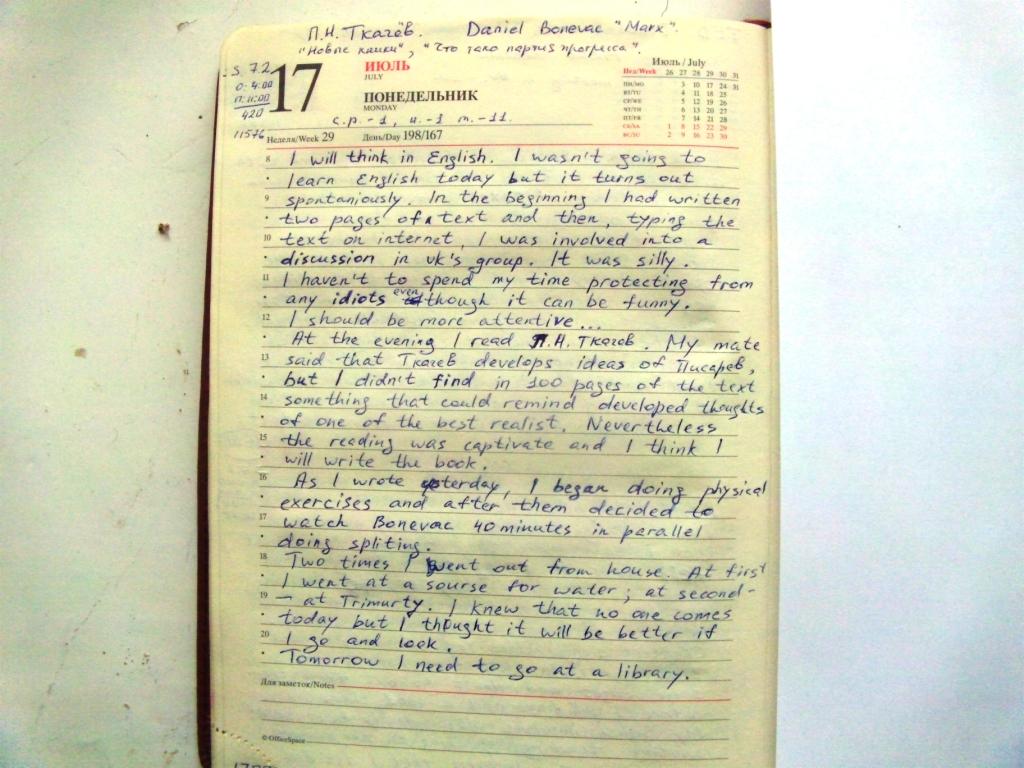 П.Н. Ткачёв. Daniel Bonevac "Marx".
"Новые книги", "Что тако партия прогресса".
S 7.2
О: 4:00
П: 11:00
420
11576
17
ИЮЛЬ
JULY
ПОНЕДЕЛЬНИК
MONDAY
с.р. -1, и.-1 т.-11.
Неделя/Week 29 День/Day 198/167
Июль / July
Нед/Week 26 27 28 29 30 31
ПН/MO 3 10 17 24 31
ВТ/TU 4 11 18 25
СР/WE 5 12 19 26
ЧТ/TH 6 13 20 27
ПТ/FR 7 14 21 28
СБ/SA 1 8 15 22 29
ВС/SU 2 9 16 23 30
8 I will think in English. I wasn't going to
learn English today but it turns out
9 spontaniously. In the beginning I had written
two pages of text and then, typing the
10 text on internet, I was involved into a
discussion in vk's group. It was silly.
11 I haven't to spend my time protecting from
any idiots even though it can be funny.
12 I should be more attentive...
At the evening I read П.Н. Ткачев. My mate
13 said that Ткачев develops ideas of Писарев,
but I didn't find in 100 pages of the text
14 something that could remind developed thoughts
of one of the best realist. Nevertheless
15 the reading was captivate and I think I
will write the book.
16 As I wrote yesterday, I began doing physical
exercises and after them decided to
17 watch Bonevac 40 minutes in parallel
doing spliting.
18 Two times I went out from house. At first
I went at a sourse for water; at second-
19 - at Trimurty. I knew that no one comes
today but I thought it will be better if
20 I go and look.
Tomorrow I need to go at a library.
Для заметок/Notes
© OfficeSpace